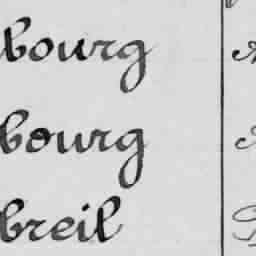 bourg
bourg
breil